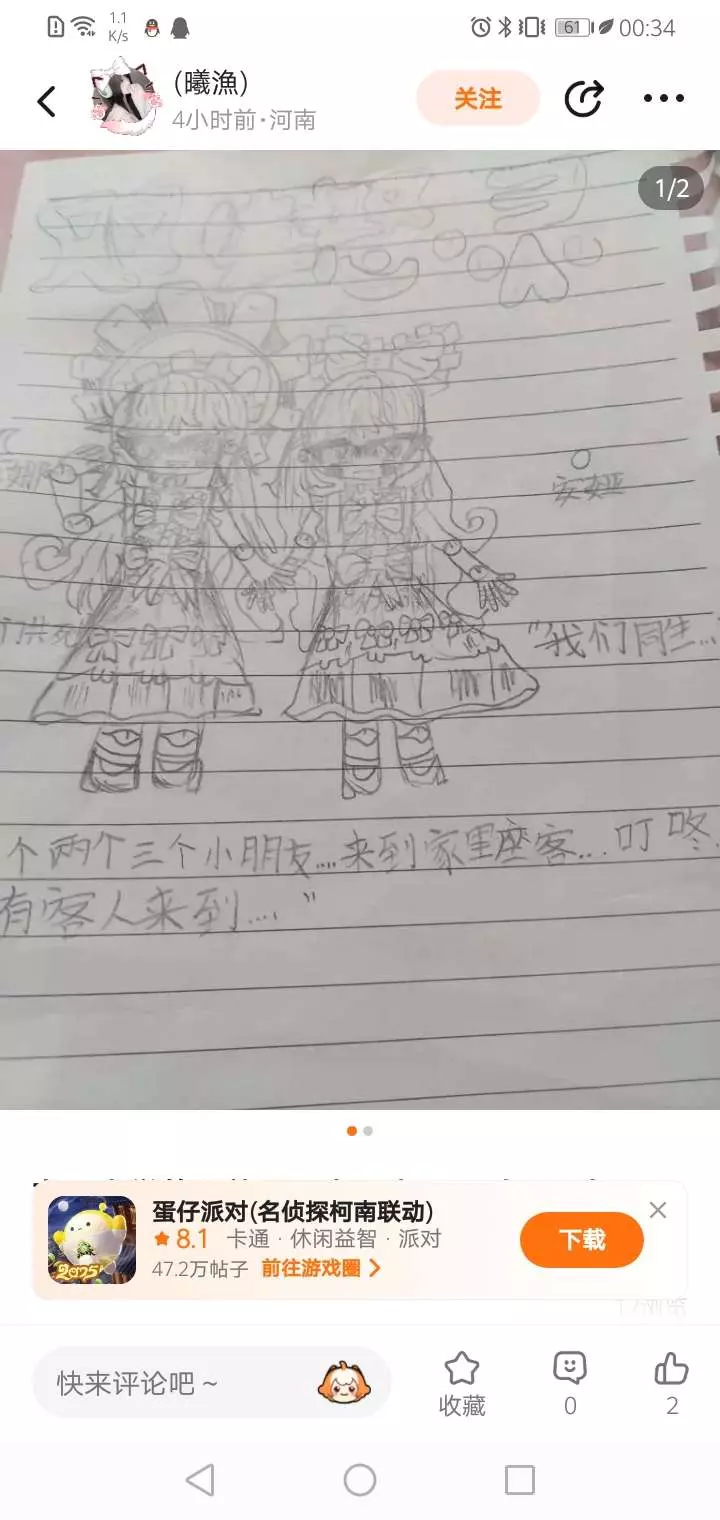 1.1
K/s
61
00:34
(曦漁)
4小时前·河南
关注
1/2
安娅
"我们同生...
个两个三个小朋友...来到家里座客...叮咚
有客人来到...."
蛋仔派对(名侦探柯南联动)
8.1 卡通 · 休闲益智 · 派对
47.2万帖子 前往游戏圈
下载
2025
快来评论吧~
收藏
0
2